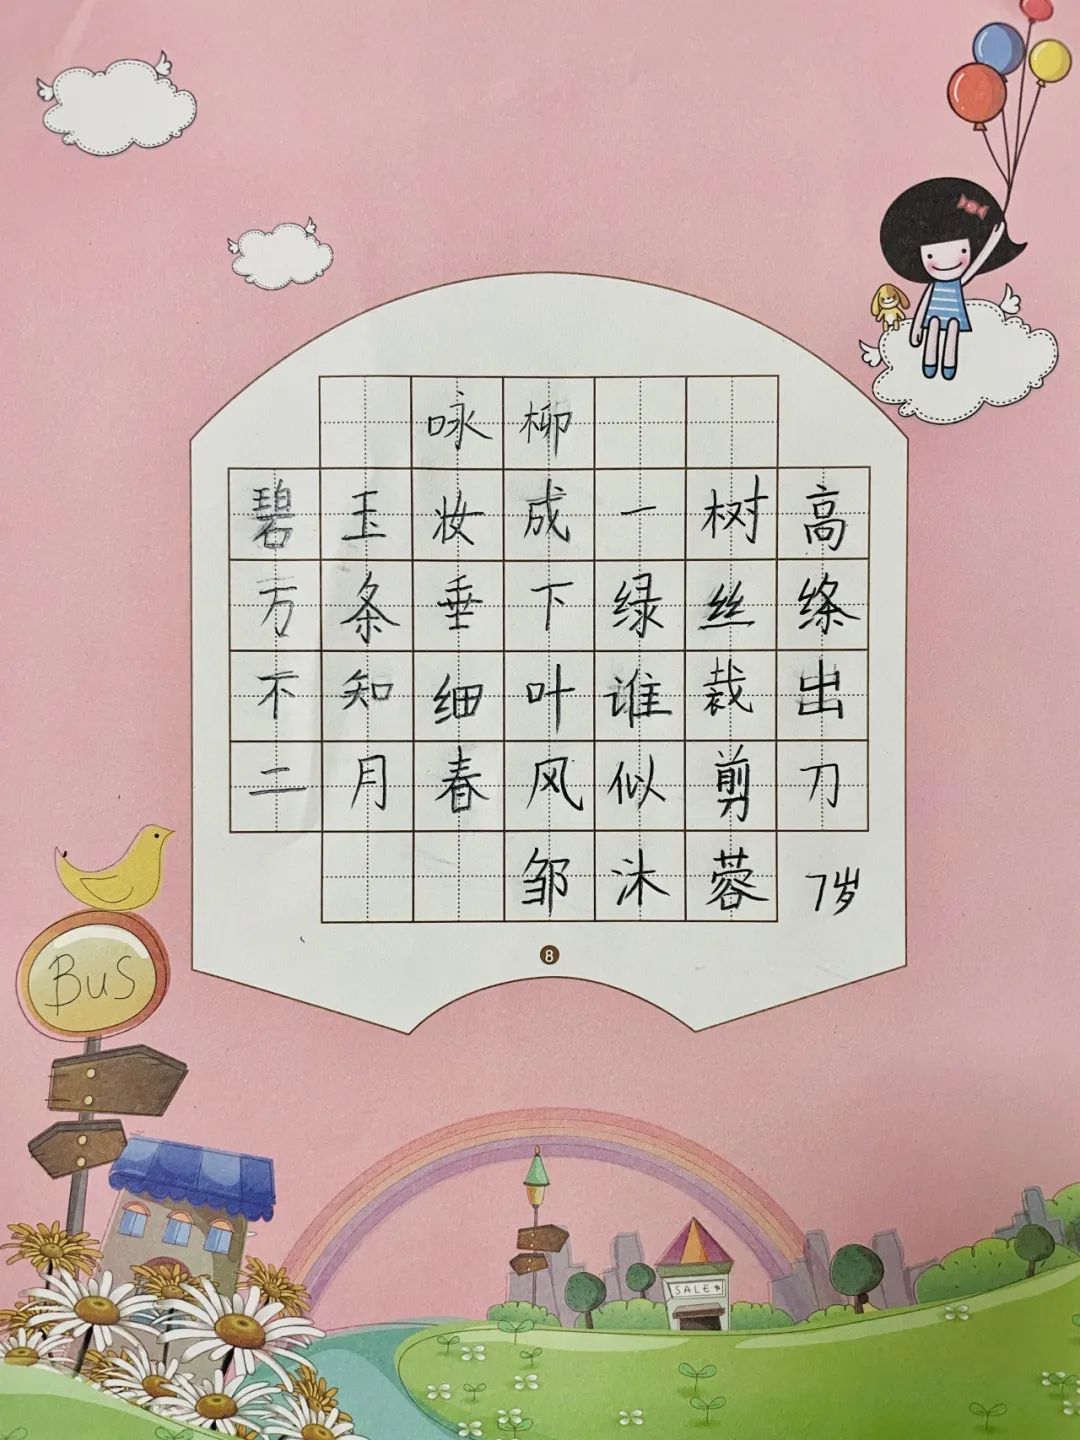 咏柳
碧玉妆成一树高
万条垂下绿丝绦
不知细叶谁裁出
二月春风似剪刀
邹沐蓉 7岁
8
BUS
SALE